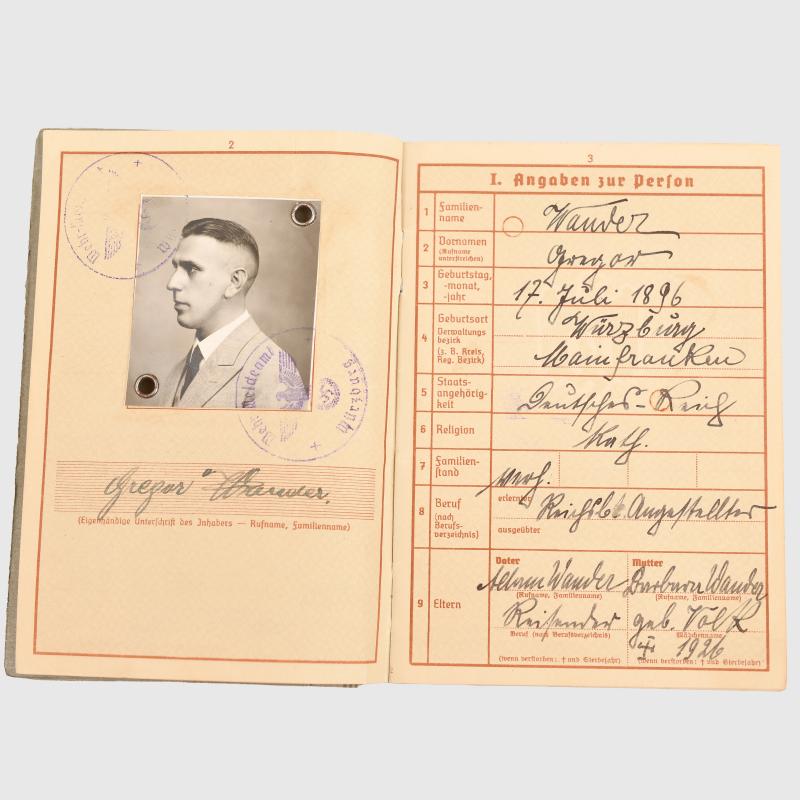 2
Wehrmeldeamt
Gregor Wander.
(Eigenhändige Unterschrift des Inhabers — Rufname, Familienname)
3
I. Angaben zur Person
1 Familien-
name
Wander
2 Vornamen
(Rufname
unterstreichen)
Gregor
3 Geburtstag,
-monat,
-jahr
17. Juli 1896
4 Geburtsort
Verwaltungs-
bezirk
(z. B. Kreis,
Reg. Bezirk)
Würzburg
Mainfranken
5 Staats-
angehörig-
keit
Deutsches-Reich
6 Religion
Kath.
7 Familien-
stand
verh.
8 Beruf
(nach
Berufs-
verzeichnis)
erlernter
Reichsb. Angestellter
ausgeübter
9 Eltern
Vater
Adam Wander
(Rufname, Familienname)
Reisender
Beruf (nach Berufsverzeichnis)
(wenn verstorben: † und Sterbejahr)
Mutter
Barbara Wander
(Rufname, Familienname)
geb. Volk
Mädchenname
1926
(wenn verstorben: † und Sterbejahr)